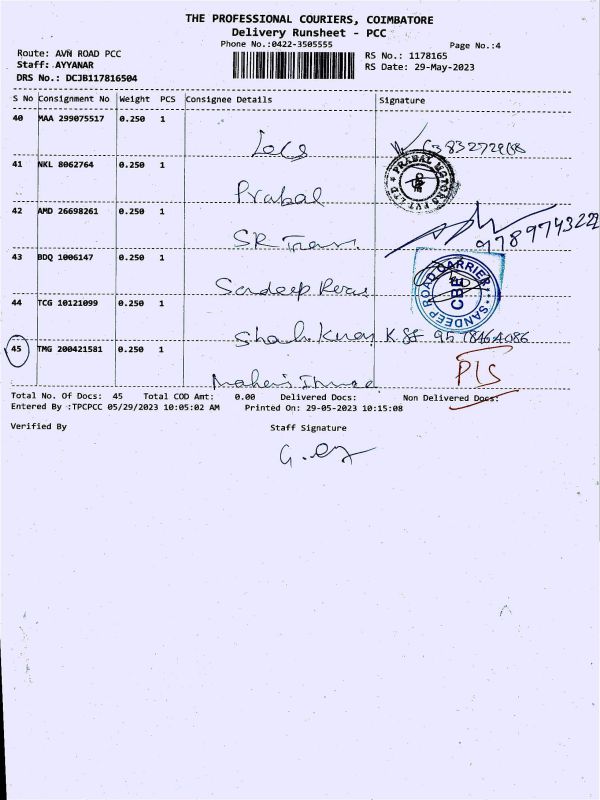 THE PROFESSIONAL COURIERS, COIMBATORE
Delivery Runsheet - PCC
Phone No.:0422-3505555
Page No.:4
Route: AVN ROAD PCC
RS No.: 1178165
Staff: AYYANAR
RS Date: 29-May-2023
DRS No.: DCJB117816504
S No Consignment No Weight PCS Consignee Details Signature
40 MAA 299075517 0.250 1
41 NKL 8062764 0.250 1
Prabal
PRABAL MOTORS PVT LTD
42 AMD 26698261 0.250 1
SR Trans.
9789743222
43 BDQ 1006147 0.250 1
Sandeep
SANDEEP ROAD CARRIER
CBE
44 TCG 10121099 0.250 1
45 TMG 200421581 0.250 1
Total No. Of Docs: 45 Total COD Amt: 0.00 Delivered Docs: Non Delivered Docs:
Entered By :TPCPCC 05/29/2023 10:05:02 AM Printed On: 29-05-2023 10:15:08
Verified By Staff Signature